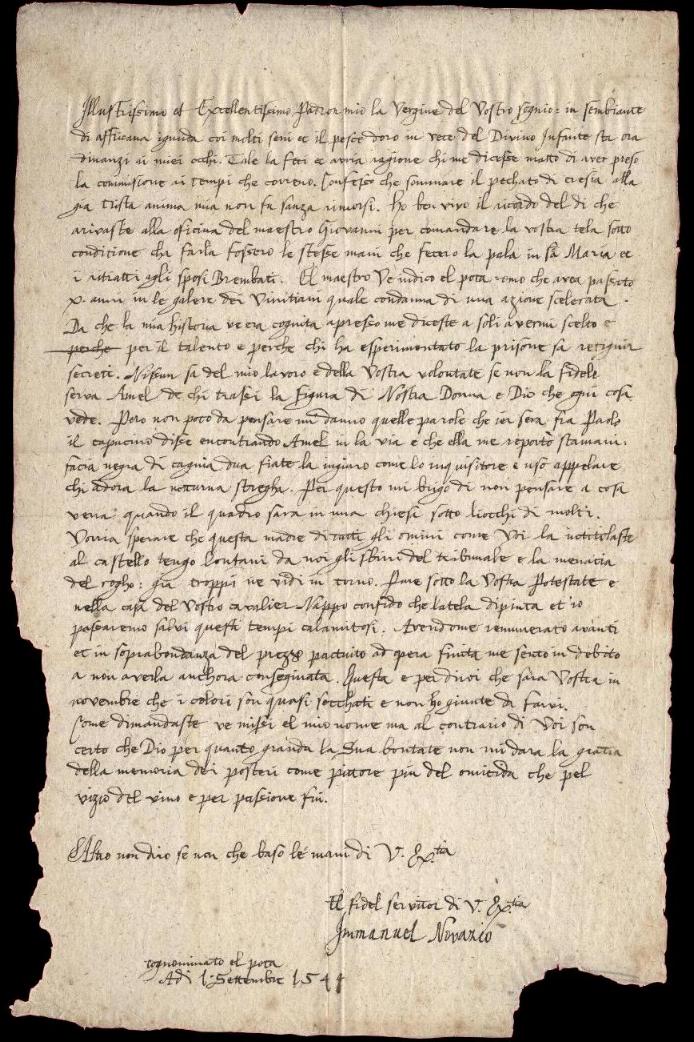 Illustrissimo et Excellentissimo Padron mio la Vergine del Vostro sognio: in sembiante
di affricana ignuda coi molti seni et il pesce doro in vece del Divino Infante sta ora
dinanzi ai miei occhi. Tale la feci et avria ragione chi me dicesse matto di aver preso
la commisione ai tempi che correno. Confesso che sommare il pechato di eresia alla
gia trista anima mia non fu sanza rimorsi. Ho ben vivo il ricordo del di che
arivaste alla oficina del maestro Giovanni per comandare la vostra tela sotto
conditione che farla fossero le stesse mani che fecero la pala in sta Maria et
i ritratti agli sposi Brembati. El maestro ve indico el pota como che avea passato
X anni in le galere dei Vinitiani quale condanna di una azione scelerata.
Da che la mia historia ve era cognita apresso me diceste a soli avermi scelto e
perche per il talento e perche chi ha esperimentato la prisone sa retignir
secreti. Nissun sa del mio lavoro e della Vostra volontate se non la fidele
serva Amel de chi trassi la figura di Nostra Donna e Dio che ogni cosa
vede. Pero non poco da pensare mi danno quelle parole che ier sera fra Paolo
il capucino disse encontrando Amel in la via e che ella me reporto stamani.
facia negra di cagnia dua fiate la ingiuro come lo inquisitore e uso appelare
chi adora la notturna stregha. Per questo mi bigo di non pensare a cosa
verra quando il quadro sara in una chiesa sotto liocchi di molti.
Vorria sperare che questa madre di tutti gli omini come Voi la intitolaste
al castello tengo lontani da noi gli sbirri del tribunale e la menacia
del rogho: gia troppi ne vidi in torno. Pure sotto la Vostra Potestate e
nella casa del Vostro cavalier Nappo confido che latela dipinta et io
passaremo salvi questi tempi calamitosi. Avendome renumerato avanti
et in soprabondanza del prezzo pactuito ad opera finita me sento in debito
a non averla anchora consegniata. Questa e per dirvi che sara Vostra in
novembre che i colori son quasi secchati e non ho giunte di farvi.
Come dimandaste ve missi el mio nome ma al contrario di Voi son
certo che Dio per quanto granda la Sua bontate non mi dara la gratia
della memoria dei posteri come pittore piu del omicida che pel
vizio del vino e per passione fui.
Altro non diro se non che baso le mani di V. Ex.tia
El fidel servitor di V. Ex.tia
Immanuel Novazio
cognominato el pota
Adi 1 Settembre 1544